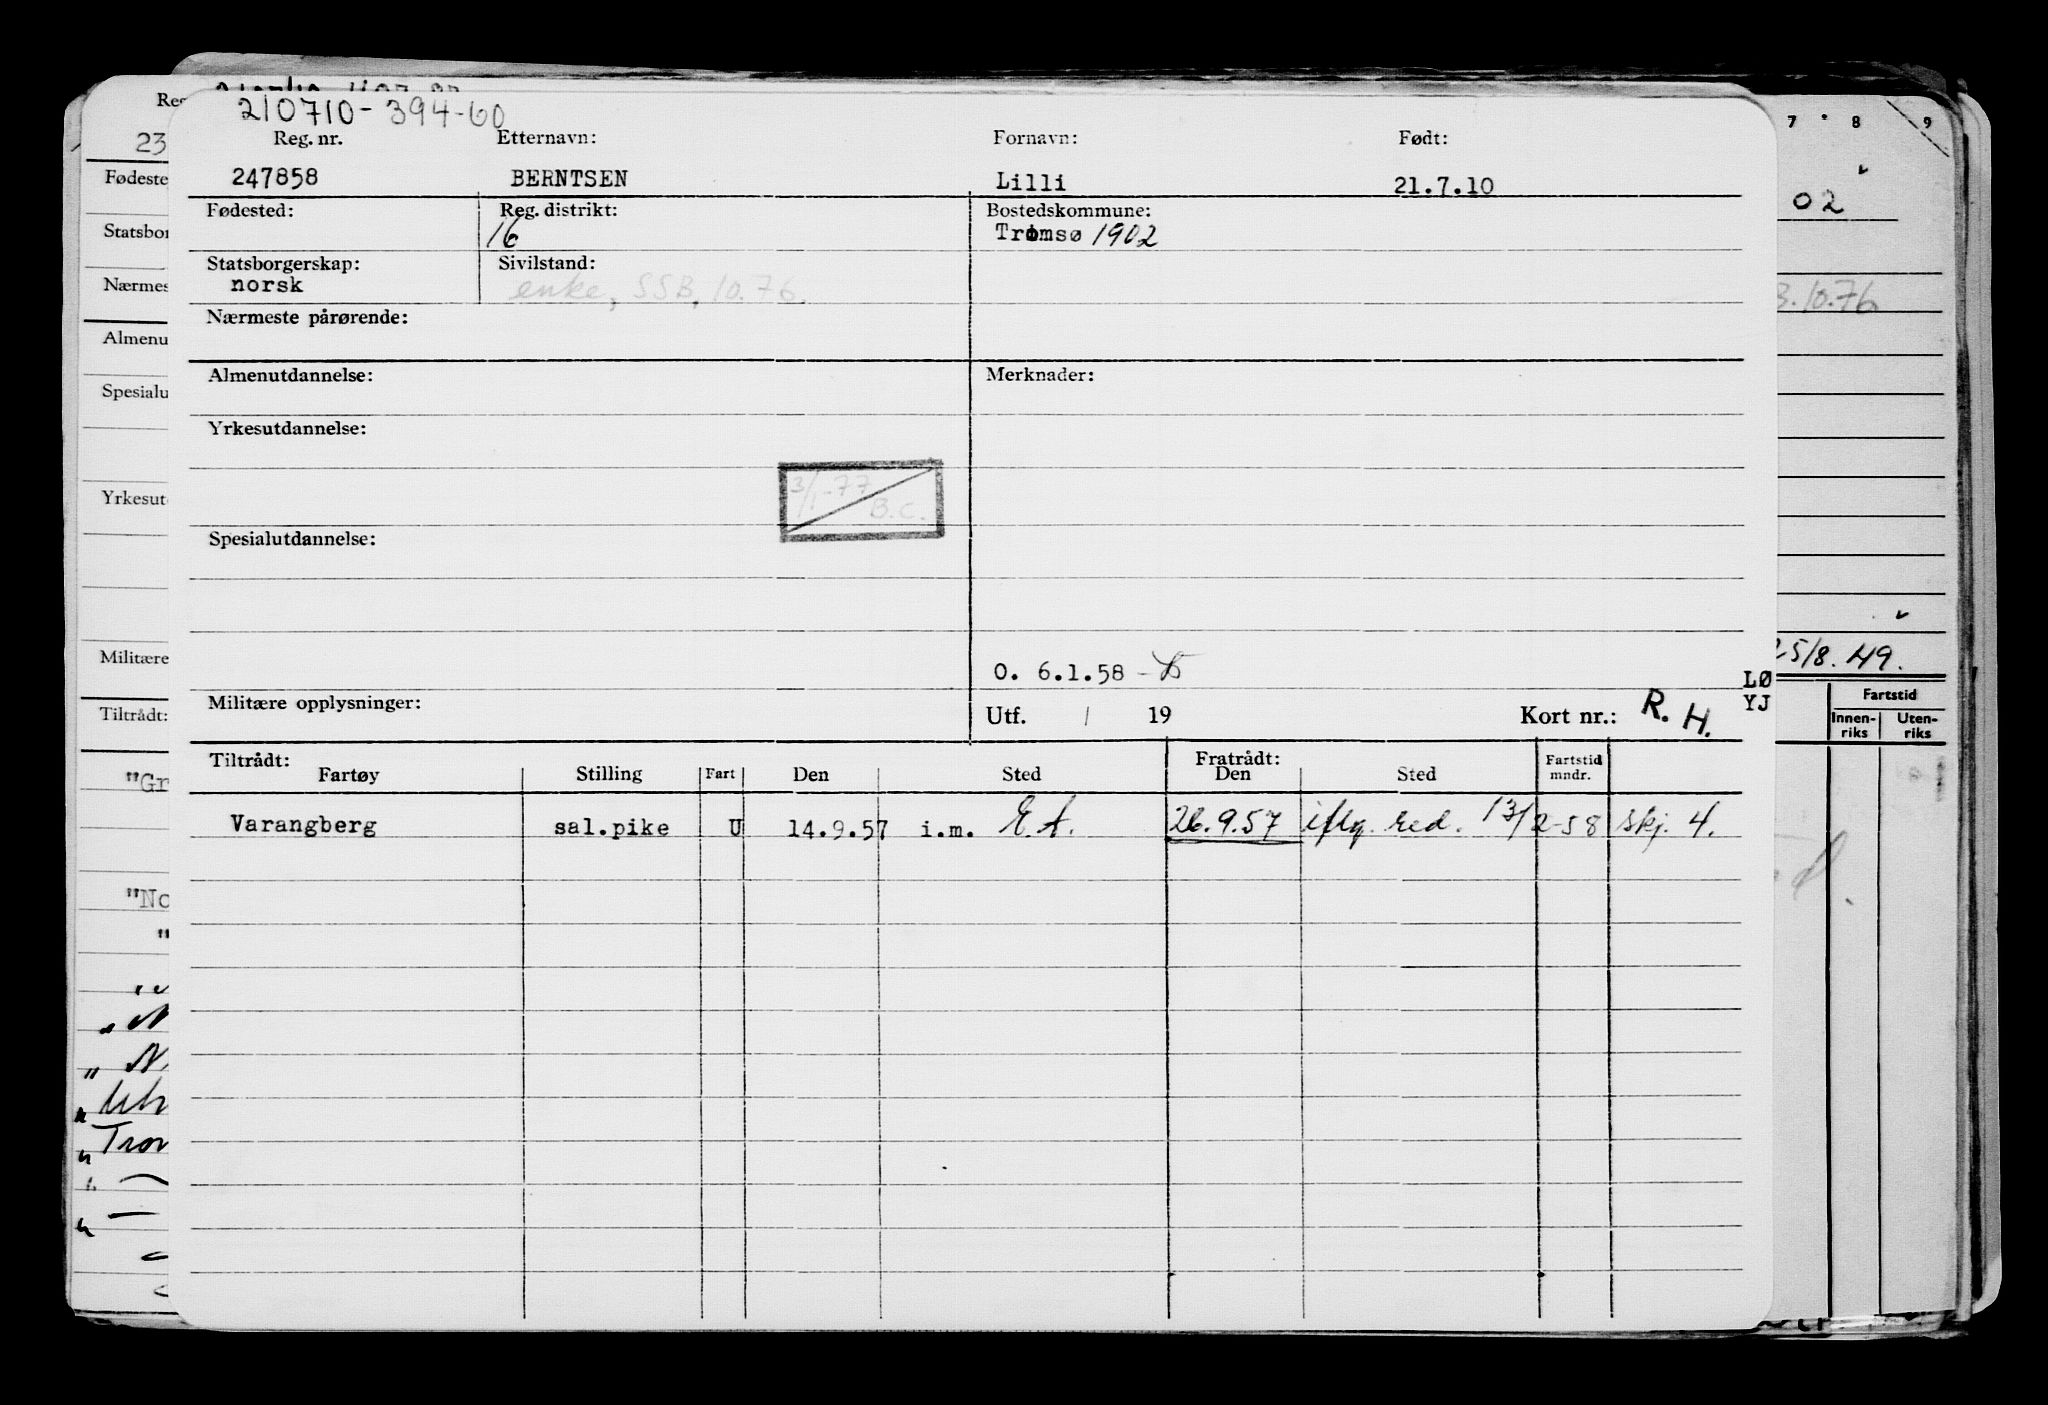 210710-394-60
Reg. nr. Etternavn: Fornavn: Født:
247858 BERNTSEN Lilli 21.7.10
Fødested: Reg. distrikt: Bostedskommune:
16 Tromsø 1902
Statsborgerskap: Sivilstand:
norsk enke, SSB, 10.76.
Nærmeste pårørende:
Almenutdannelse: Merknader:
Yrkesutdannelse:
3/1-77 B.C.
Spesialutdannelse:
O. 6.1.58
LØ
YJ
Militære opplysninger: Utf. / 19 Kort nr.: R. H.
Tiltrådt: Fratrådt: Fartstid
Fartøy Stilling Fart Den Sted Den Sted mndr.
Varangberg sal.pike U 14.9.57 i.m. E.A. 26.9.57 iflg. red. 13/2-58 skj. 4.
Reg
23
Fødeste
Statsbor
Nærmes
Almenu
Spesialu
Yrkesut
Militære
Tiltrådt:
"Gr
"No
"
" N
" N.
" Tron
7 8 9
02
3.10.76
25/8.49.
Fartstid
Innen-
riks
Uten-
riks